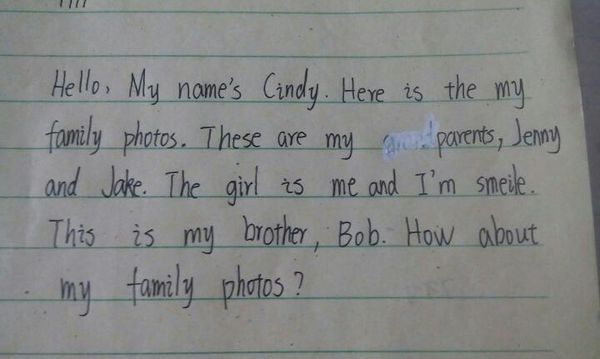 Hello, My name's Cindy. Here is the my
family photos. These are my parents, Jenny
and Jake. The girl is me and I'm smeile.
This is my brother, Bob. How about
my family photos?